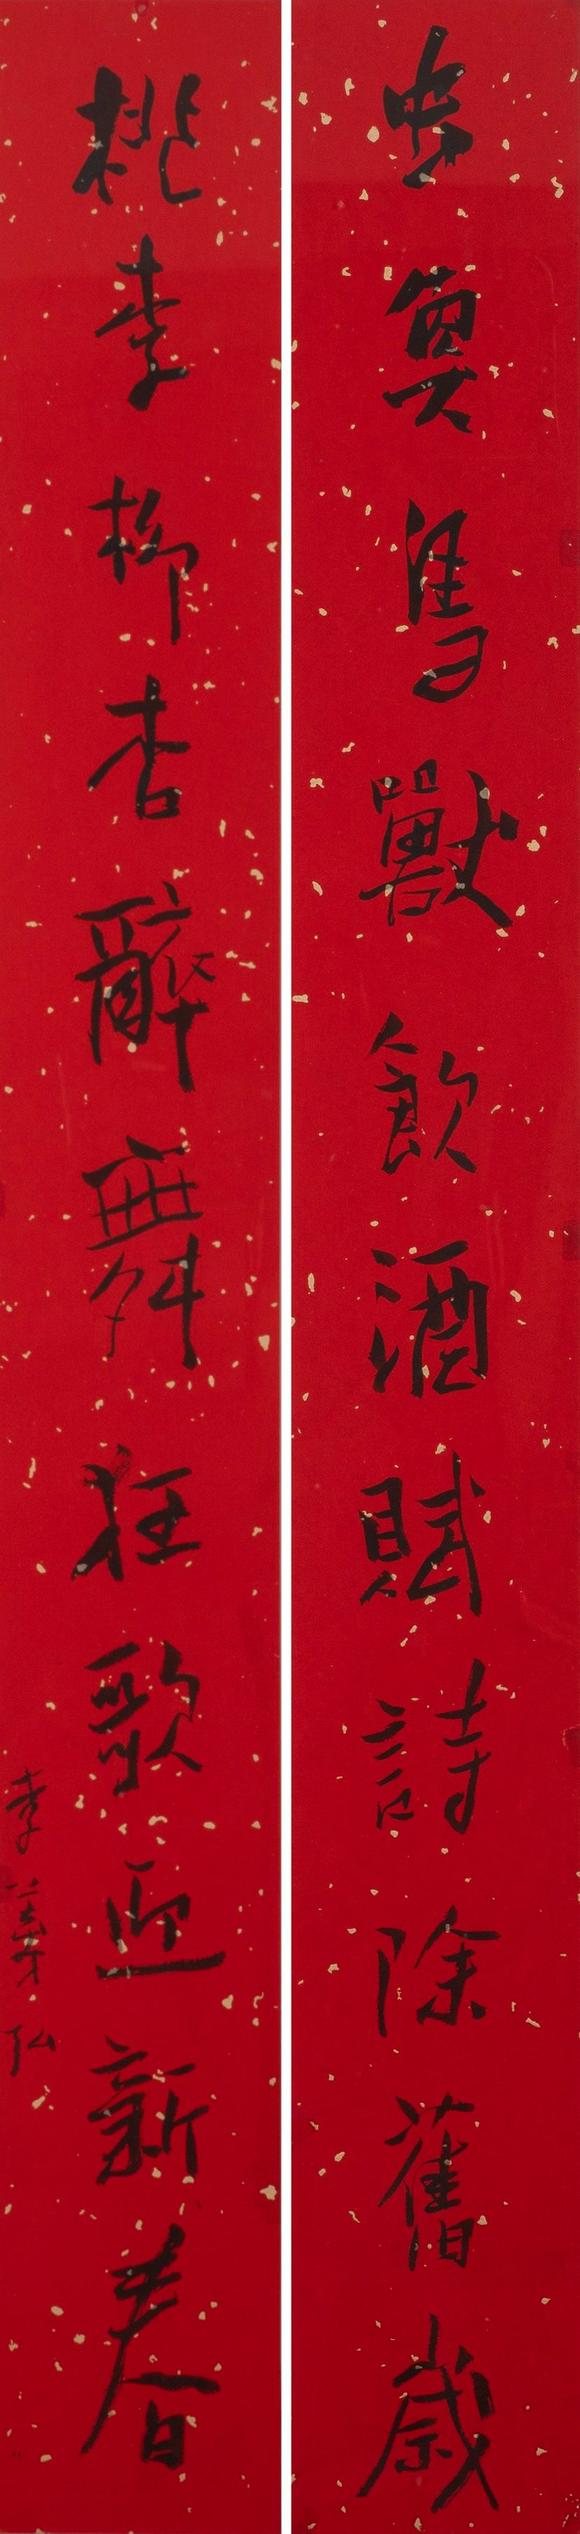 虫魚隻獸飲酒賦詩除舊歲
桃李柳杏醉舞狂歌迎新春
李義弘